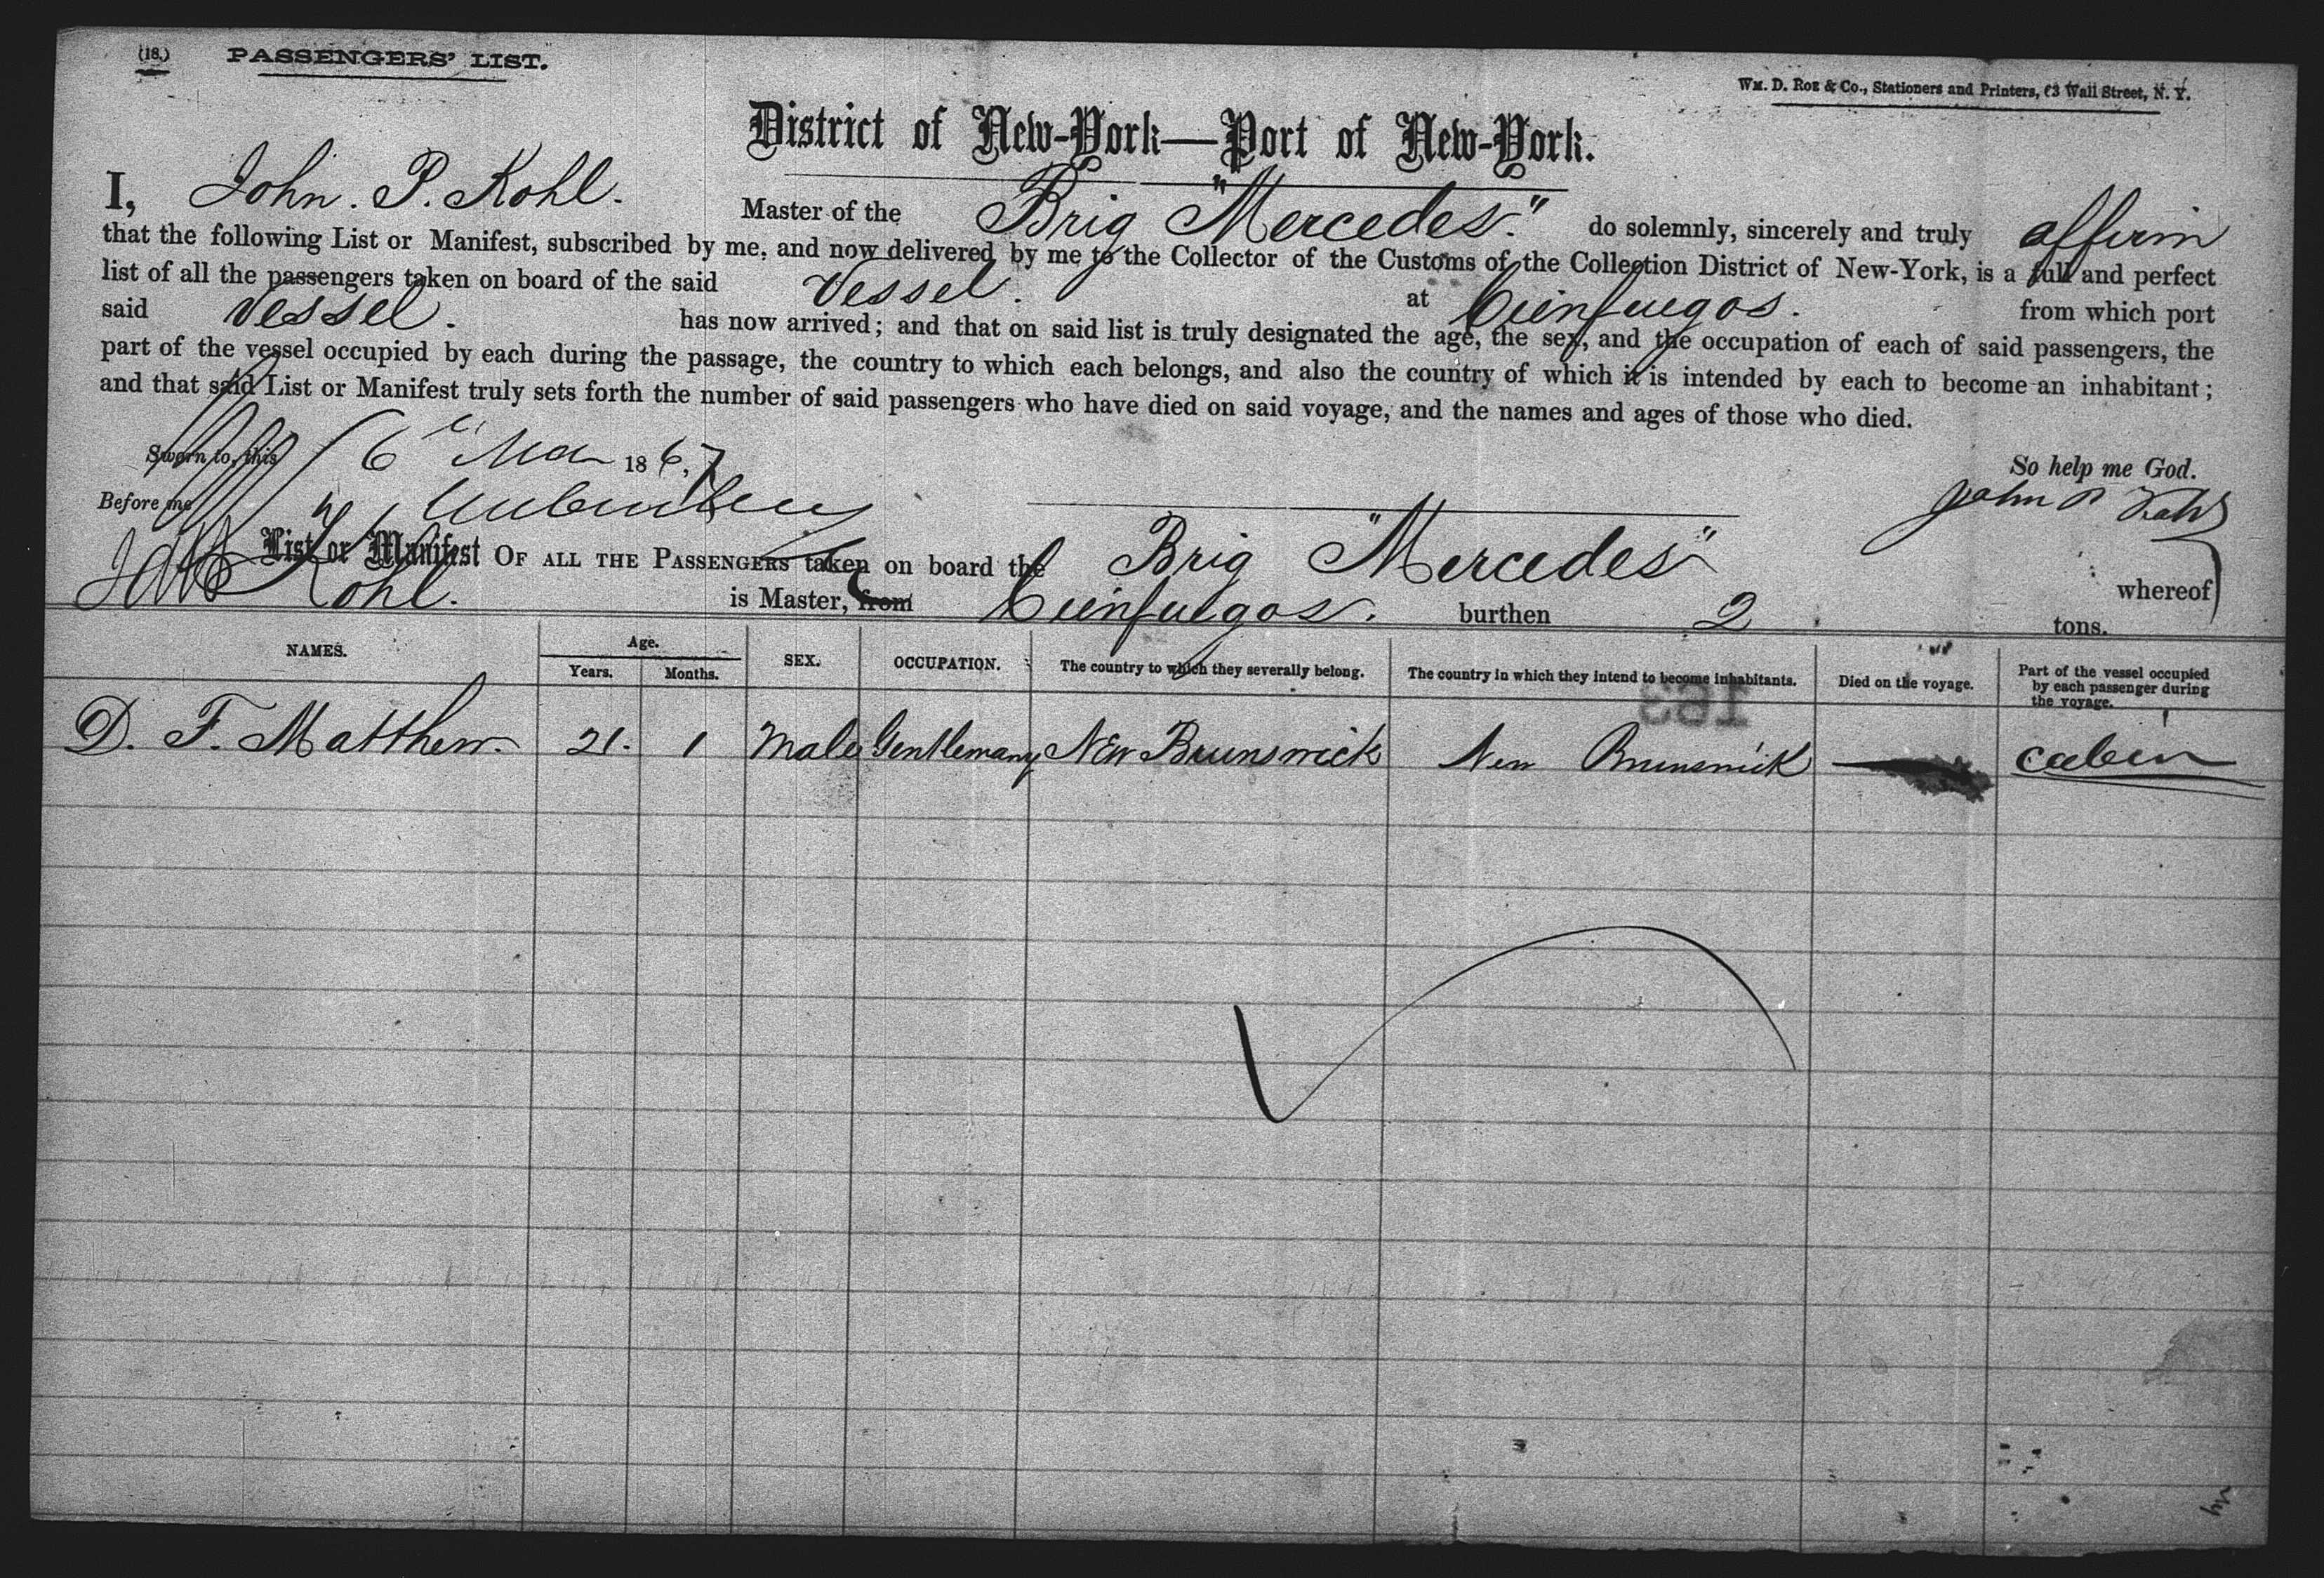 (18.) PASSENGERS' LIST.
Wm. D. Roe & Co., Stationers and Printers, 63 Wall Street, N. Y.
District of New-York—Port of New-York.
I, John. P. Kohl. Master of the Brig "Mercedes." do solemnly, sincerely and truly affirm
that the following List or Manifest, subscribed by me, and now delivered by me to the Collector of the Customs of the Collection District of New-York, is a full and perfect
list of all the passengers taken on board of the said Vessel. at Cienfuegos. from which port
said Vessel. has now arrived; and that on said list is truly designated the age, the sex, and the occupation of each of said passengers, the
part of the vessel occupied by each during the passage, the country to which each belongs, and also the country of which it is intended by each to become an inhabitant;
and that said List or Manifest truly sets forth the number of said passengers who have died on said voyage, and the names and ages of those who died.
Sworn to, this 6 Mar 1867
So help me God.
Before me
John P Kohl
List or Manifest OF ALL THE PASSENGERS taken on board the Brig "Mercedes" whereof
Kohl. is Master, from Cienfuegos. burthen 2 tons.
NAMES. Age. Years. Months. SEX. OCCUPATION. The country to which they severally belong. The country in which they intend to become inhabitants. Died on the voyage. Part of the vessel occupied by each passenger during the voyage.
163
D. F. Matthew. 21. 1 Male Gentleman New Brunswick New Brunswick — cabin